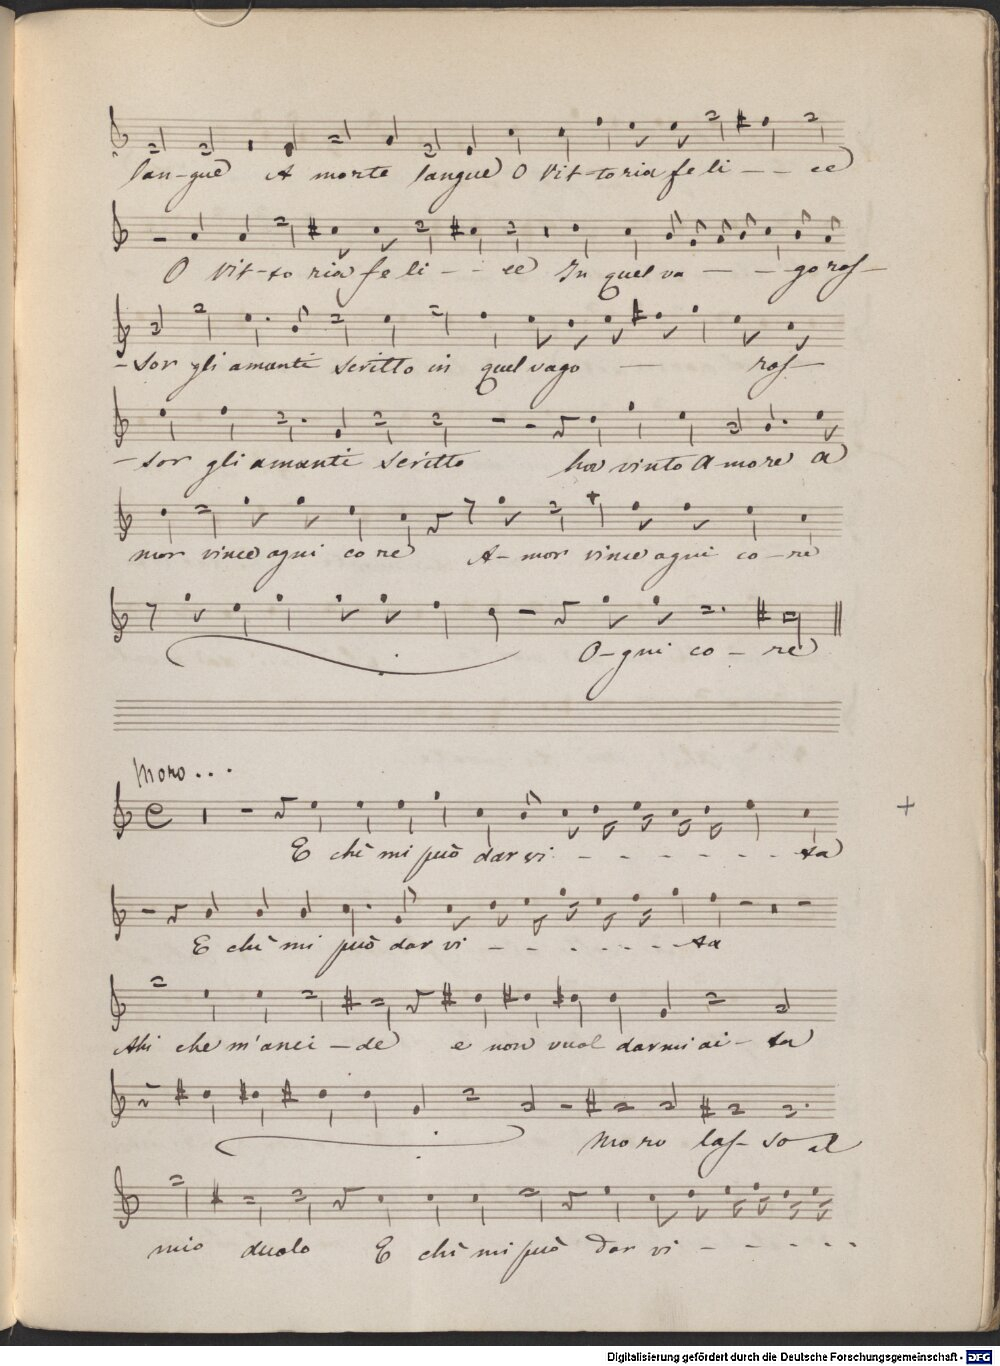 lan-gue A morte langue O Vit-toria feli - - ce
O Vit-to ria feli - - ce In quel va - - go ros-
-sor gli amanti scritto in quel vago - ros-
-sor gli amanti scritto ha vinto Amore a
mor vince ogni core A-mor vince ogni co-re
O-gni co - re
Moro...
E chi mi può dar vi - - - - - - ta
E chi mi può dar vi - - - - - - ta
Ahi che m'anci-de e non vuol darmi ai-ta
Moro las-so al
mio duolo E chi mi può dar vi - - - - -
Digitalisierung gefördert durch die Deutsche Forschungsgemeinschaft - DFG